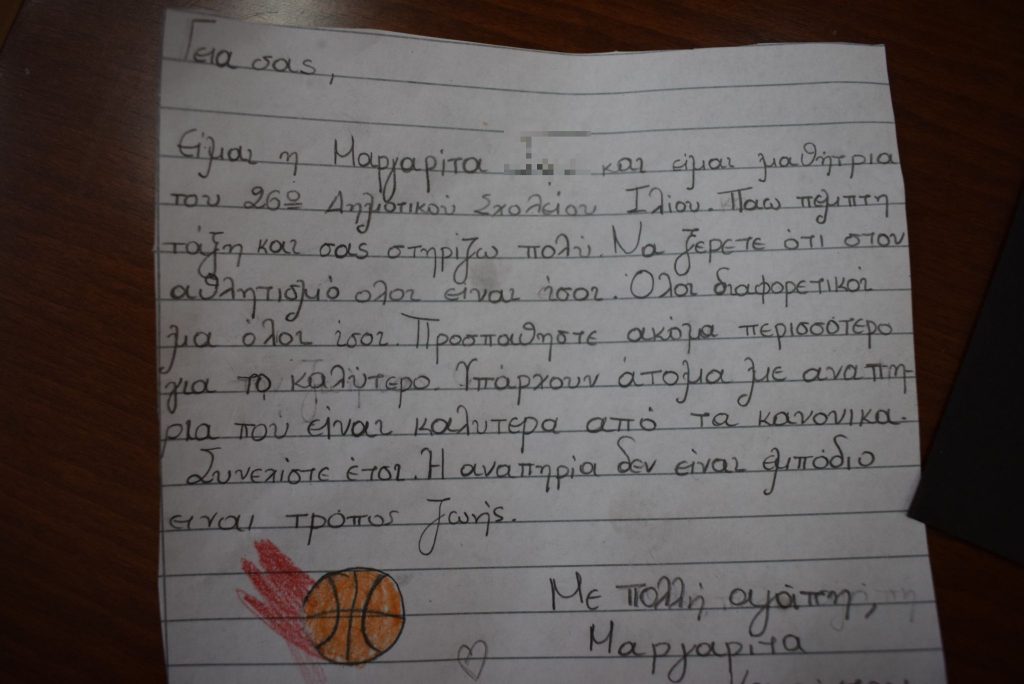 Γεια σας,
Είμαι η Μαργαρίτα και είμαι μαθήτρια
του 26ο Δημοτικού Σχολείου Ιλίου. Παω πέμπτη
τάξη και σας στηρίζω πολύ. Να ξέρετε ότι στον
αθλητισμό ολοι ειναι ίσοι. Όλοι διαφορετικοί
μα όλοι ίσοι. Προσπαθηστε ακόμα περισσότερο
για το καλύτερο. Υπάρχουν άτομα με αναπη-
ρια που είναι καλυτερα από τα κανονικα.
Συνεχίστε έτσι. Η αναπηρία δεν είναι εμπόδιο
ειναι τρόπος ζωής.
Με πολλή αγάπη,
Μαργαρίτα